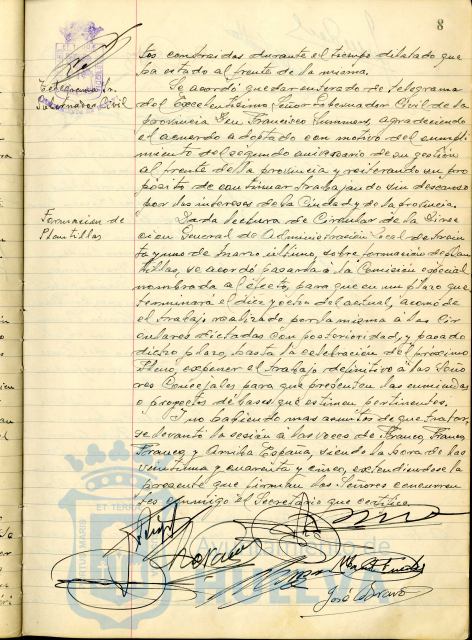 8
tos contraidos durante el tiempo dilatado que
ha estado al frente de la misma.
Telegrama Sr.
Gobernador Civil
Se acordó quedar enterado de telegrama
del Excelentísimo Señor Gobernador Civil de la
provincia Don Francisco Summers, agradeciendo
el acuerdo adoptado con motivo del cumpli-
miento del segundo aniversario de su gestión
al frente de la provincia y reiterando su pro
pósito de continuar trabajando sin descanso
por los intereses de la Ciudad y de la provincia.
Formación de
Plantillas
Dada lectura de Circular de la Direc
ción General de Administración Local de trein
ta y uno de Marzo último, sobre formación de Plan
tillas, se acordó pasarla á la Comisión especial
nombrada al efecto, para que en un plazo que
terminará el diez y ocho del actual, acomode
el trabajo realizado por la misma á las Cir
culares dictadas con posterioridad, y pasado
dicho plazo, hasta la celebración del próximo
Pleno, exponer el trabajo definitivo á los Seño
res Concejales para que presenten las enmiendas
o proyectos de bases que estimen pertinentes.
Y no habiendo mas asuntos de que tratar,
se levantó la sesión á las voces de Franco, Franco,
Franco, y Arriba España, siendo la hora de las
veintiuna y cuarenta y cinco, extendiendose la
presente que firman los Señores concurren
tes conmigo el Secretario que certifico.
José Bravo
ET TERRÆ
MARIS
Ayuntamiento de
HUELVA